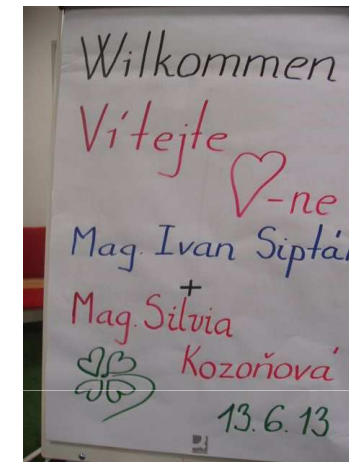 Wilkommen
Vítejte
♡-ne
Mag. Ivan Siptá
+
Mag. Silvia
Kozoňová
13.6.13